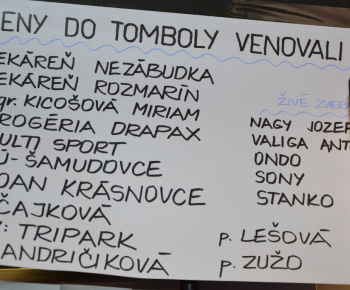 ENY DO TOMBOLY VENOVALI
EKÁREŇ NEZÁBUDKA
EKÁREŇ ROZMARÍN
gr. KICOŠOVÁ MIRIAM
ROGÉRIA DRAPAX
ULTI SPORT
Ú-ŠAMUDOVCE
OAN KRÁSNOVCE
ČAJKOVÁ
: TRIPARK
ANDRIČIKOVÁ
ŽIVÉ ZVER
NAGY JOZEF
VALIGA ANT
ONDO
SONY
STANKO
p. LEŠOVÁ
p. ZUŽO